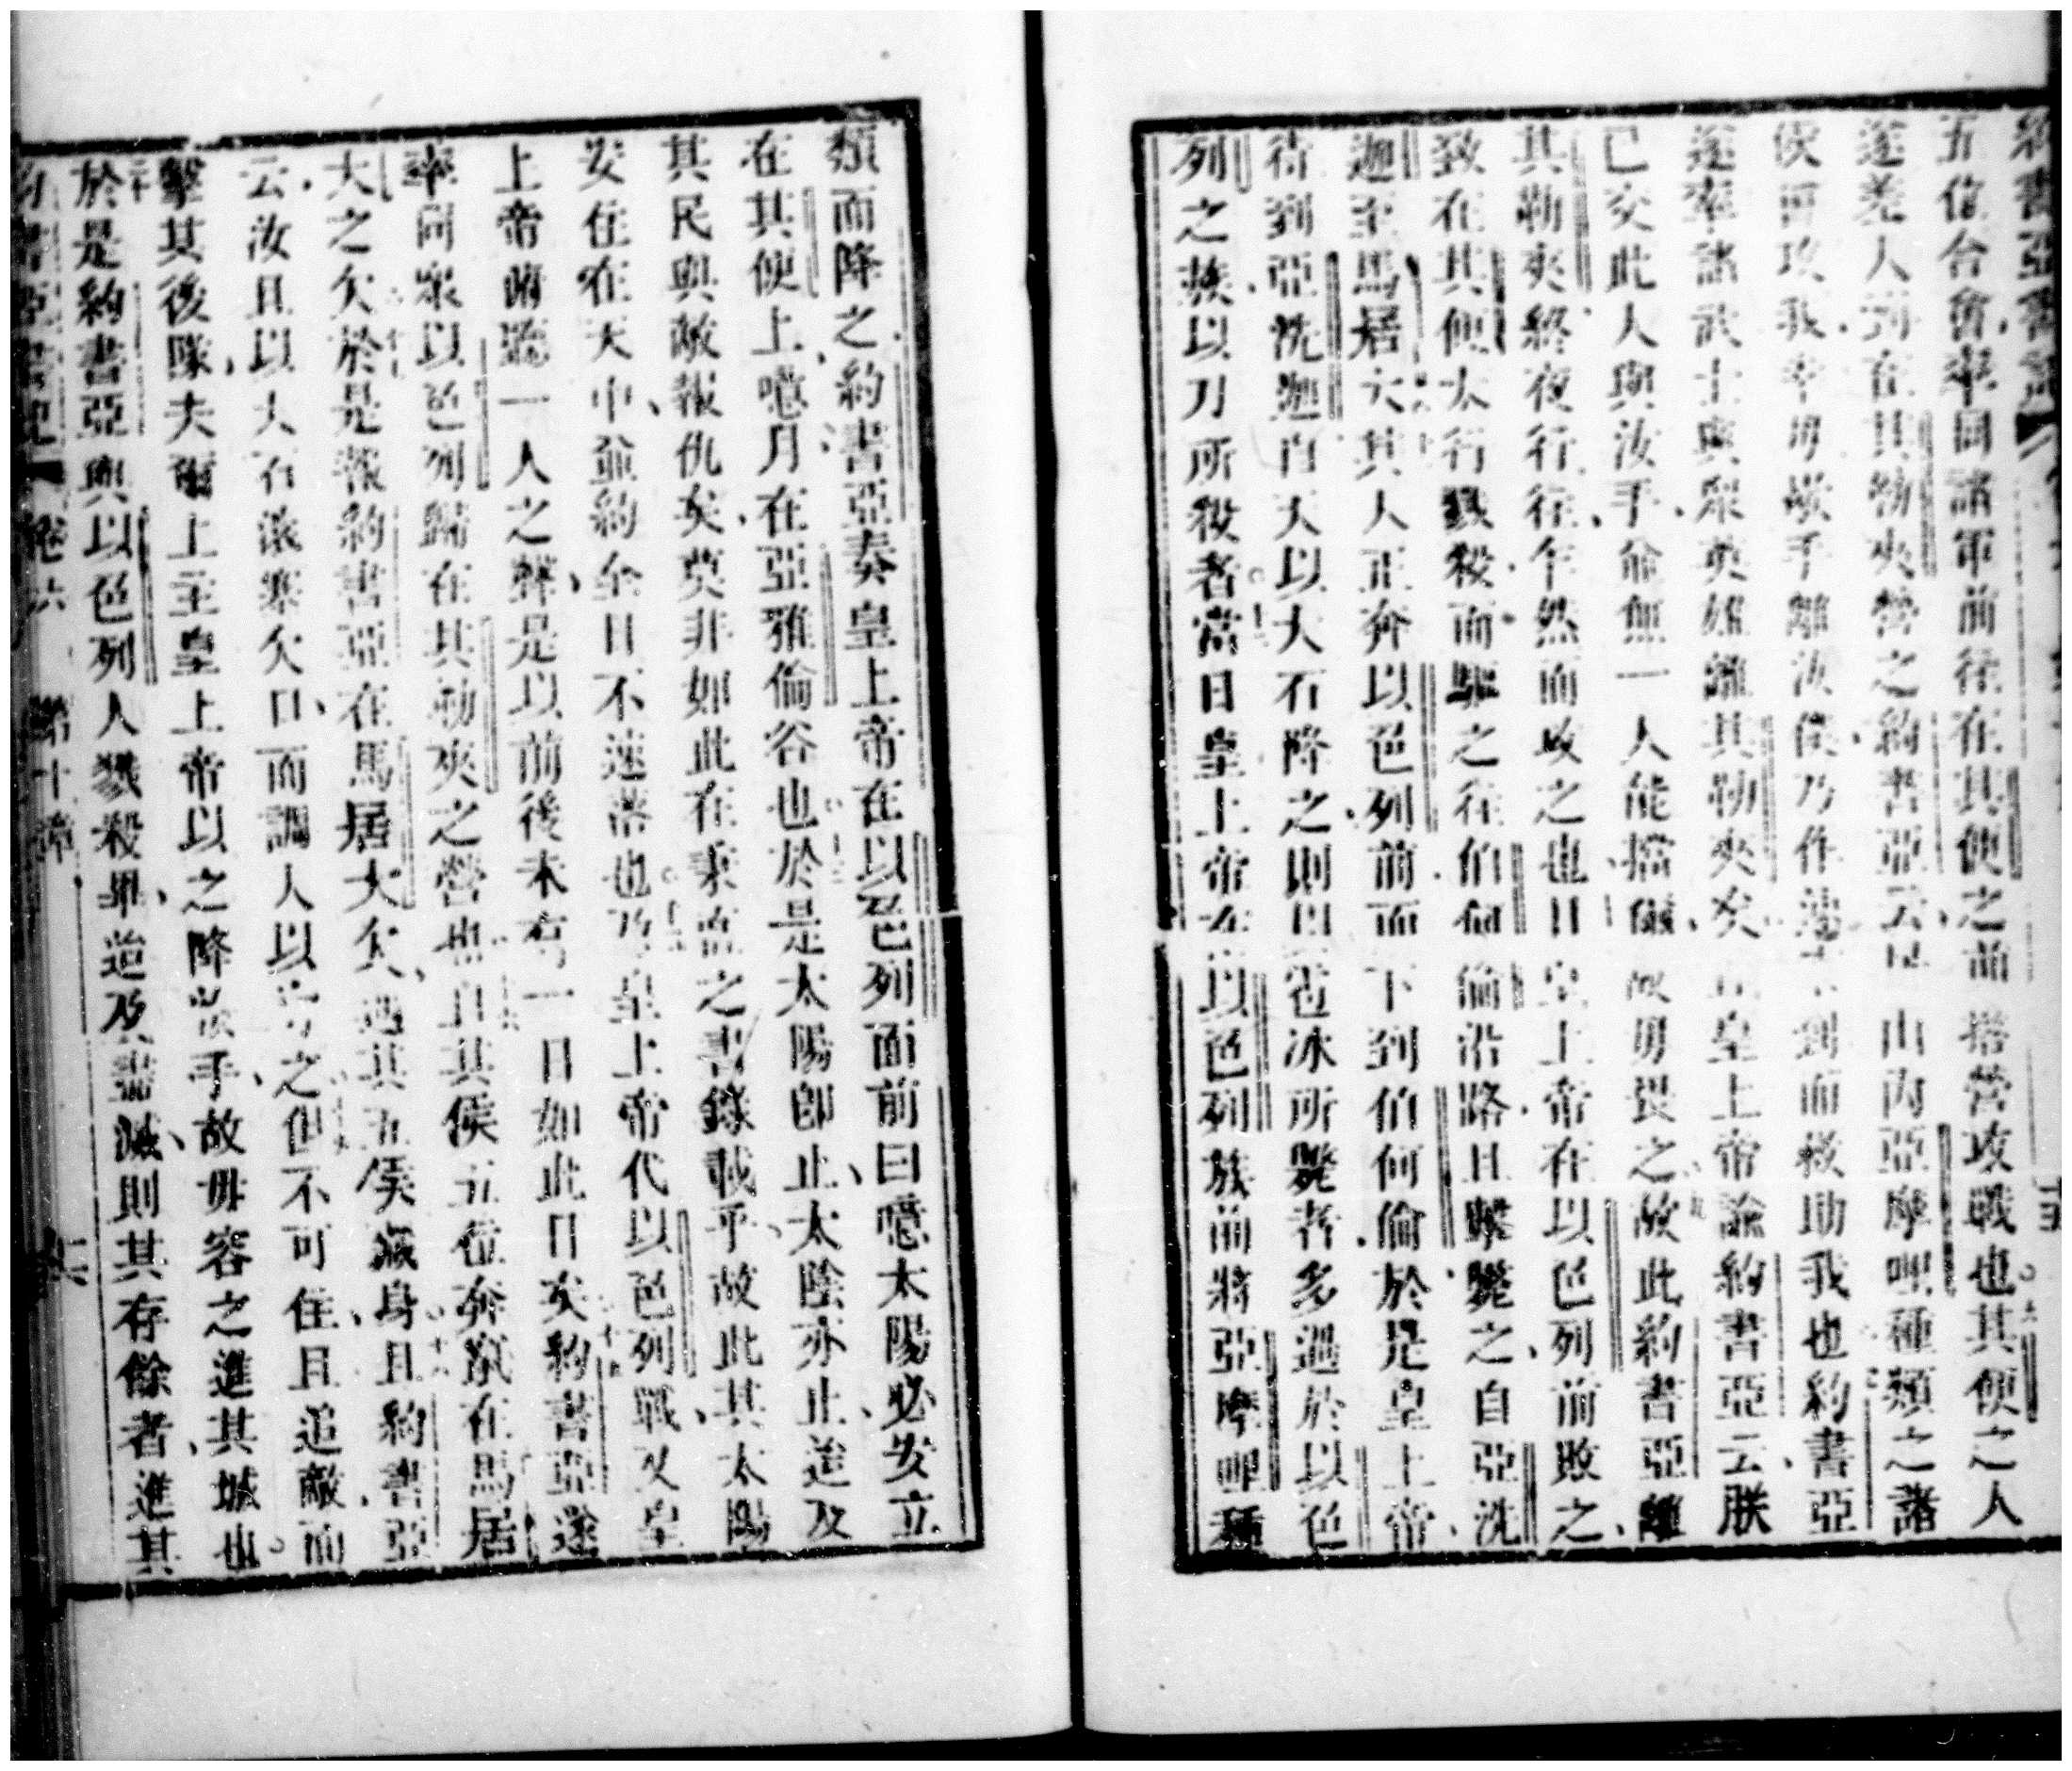 五位合會率同諸軍前往在其便之前搭營攻戰也其便之人
遂差人到在其勒夾營之約書亞云山內亞摩哩種類之諸
侯皆攻我幸毋歇手離汝僕乃作速到而救助我也約書亞
遂率諸武士與眾英雄離其勒夾矣皇上帝諭約書亞云朕
已交此人與汝手無一人能擋爾故毋畏之故此約書亞離
其勒夾終夜行往乍然而攻之也且皇上帝在以色列前敗之
致在其便大行戮殺而驅之往伯何倫沿路且擊斃之自亞洗
迦至馬居大其人正奔以色列前而下到伯何倫於是皇上帝
待到亞洗迦自天以大石降之則以雹冰所斃者多過於以色
列之族以刀所殺者當日皇上帝在以色列族前將亞摩哩種
類而降之約書亞奏皇上帝在以色列面前曰噫太陽必安立
在其便上噫月在亞雅倫谷也於是太陽即止太陰亦止迨及
其民與敵報仇矣莫非如此在秉直之書錄載乎故此其太陽
安住在天中並約全日不速落也乃皇上帝代以色列戰又皇
上帝俯聽一人之聲是以前後未有一日如此日矣約書亞遂
率同眾以色列歸在其勒夾之營也且其侯五位奔竄在馬居
大之穴於是報約書亞在馬居大穴遇其五侯藏身且約書亞
云汝且以大石滾塞穴口而調人以守之但不可住且追敵而
擊其後隊夫爾上主皇上帝以之降敵手故毋容之進其城也
於是約書亞與以色列人戮殺畢迨及盡滅則其存餘者進其
卷六 第十章